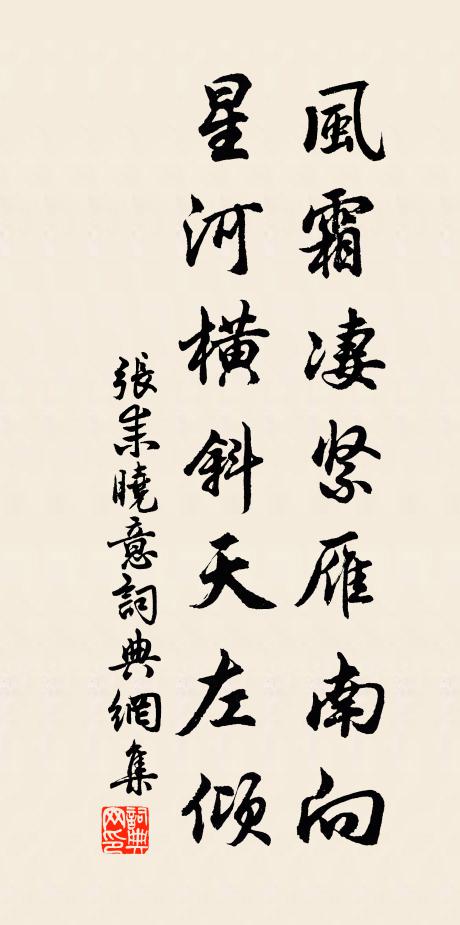 風霜凄紧雁南向
星河橫斜天左傾
張耒曉意詞典網集
詞典
网印